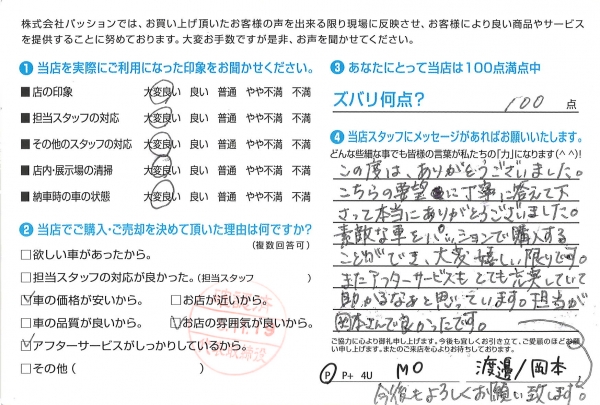 株式会社パッションでは、お買い上げ頂いたお客様の声を出来る限り現場に反映させ、お客様により良い商品やサービス
を提供することに努めております。大変お手数ですが是非、お声を聞かせてください。
❶ 当店を実際にご利用になった印象をお聞かせください。
■ 店の印象 大変良い 良い 普通 やや不満 不満
■ 担当スタッフの対応 大変良い 良い 普通 やや不満 不満
■ その他のスタッフの対応 大変良い 良い 普通 やや不満 不満
■ 店内・展示場の清掃 大変良い 良い 普通 やや不満 不満
■ 納車時の車の状態 大変良い 良い 普通 やや不満 不満
❷ 当店でご購入・ご売却を決めて頂いた理由は何ですか?
(複数回答可)
□欲しい車があったから。
□担当スタッフの対応が良かった。(担当スタッフ )
☑車の価格が安いから。 □お店が近いから。
□車の品質が良いから。 ☑お店の雰囲気が良いから
☑アフターサービスがしっかりしているから。
□その他( )
❸ あなたにとって当店は100点満点中
ズバリ何点? 100 点
❹ 当店スタッフにメッセージがあればお願いいたします。
どんな些細な事でも皆様の言葉が私たちの「力」になります(^^)!
この度は、ありがとうございました。
こちらの要望に丁寧に答えて下
さって本当にありがとうございました。
素敵な車をパッションで購入する
ことができ、大変嬉しい限りです。
またアフターサービスもとても充実していて
助かるなぁと思っています。担当が
岡本さんで良かったです。
ご協力に心より御礼申し上げます。今後も宜しくお引き立て、ご愛顧のほどお願
い申し上げます。またのご来店を心よりお待ちしております。
P P+ 4U MO 渡邉/岡本
今後もよろしくお願い致します。